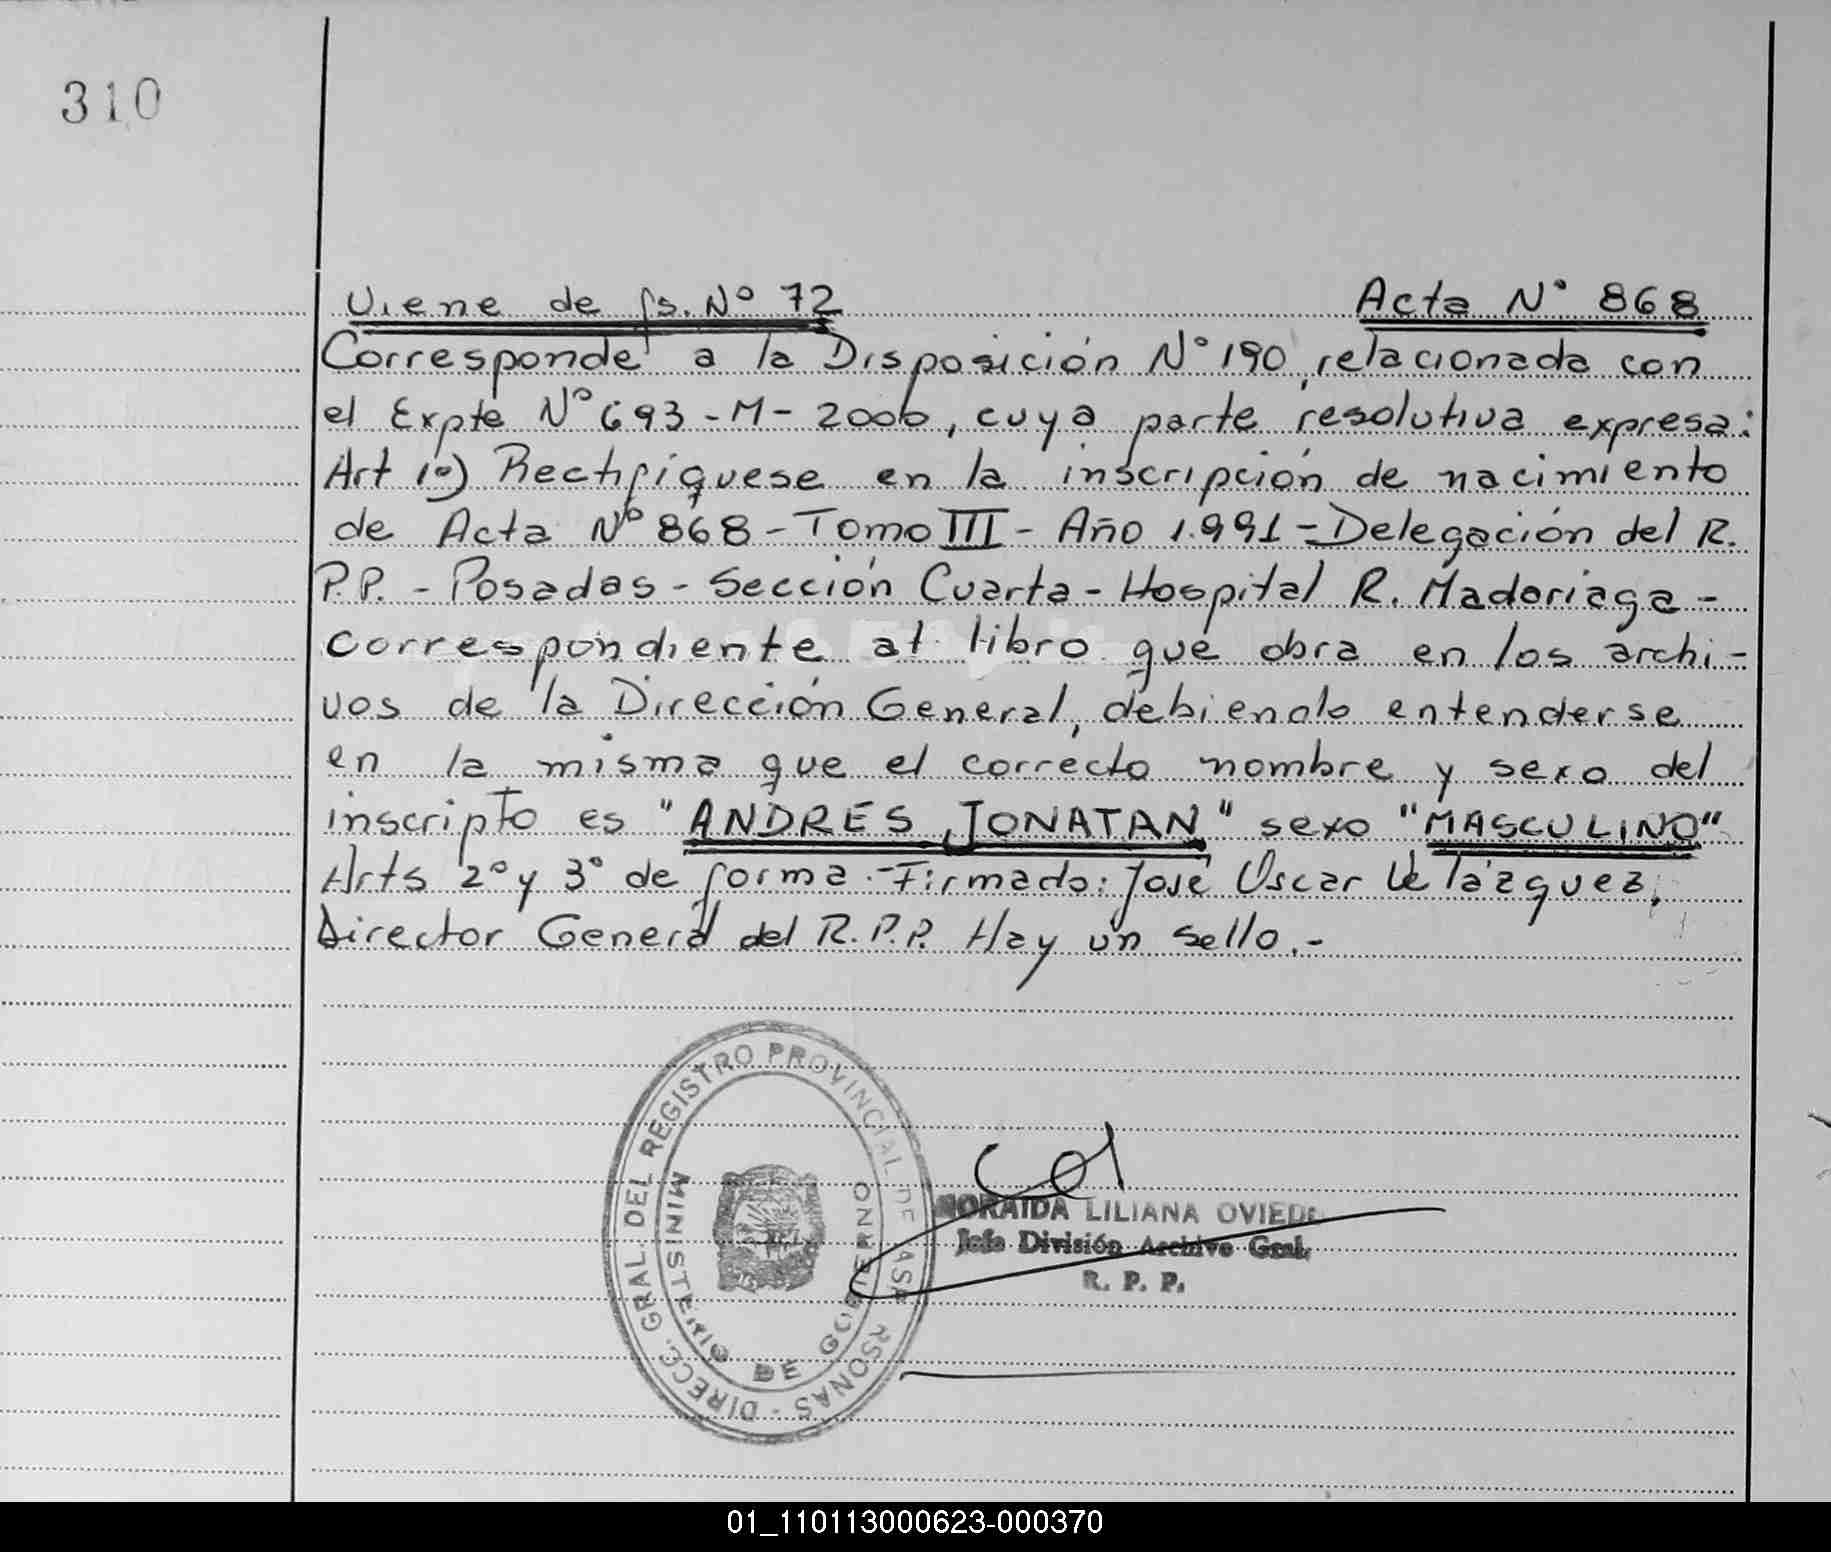 310
Viene de fs. Nº 72 Acta Nº 868
Corresponde a la Disposición Nº 190, relacionada con
el Expte Nº 693-M-2006, cuya parte resolutiva expresa:
Art 1º) Rectifíquese en la inscripción de nacimiento
de Acta Nº 868 - Tomo III - Año 1.991 - Delegación del R.
P.P. - Posadas - Sección Cuarta - Hospital R. Madariaga -
correspondiente al libro que obra en los archi-
vos de la Dirección General, debiendo entenderse
en la misma que el correcto nombre y sexo del
inscripto es "ANDRES JONATAN" sexo "MASCULINO"
Arts 2º y 3º de forma.- Firmado: José Oscar Velázquez,
Director General del R.P.P. Hay un sello.-
DIRECC. GRAL. DEL REGISTRO PROVINCIAL DE LAS PERSONAS -
MINISTERIO DE GOBIERNO
NORAIDA LILIANA OVIEDO
Jefe División Archivo Gral.
R. P. P.
01_110113000623-000370